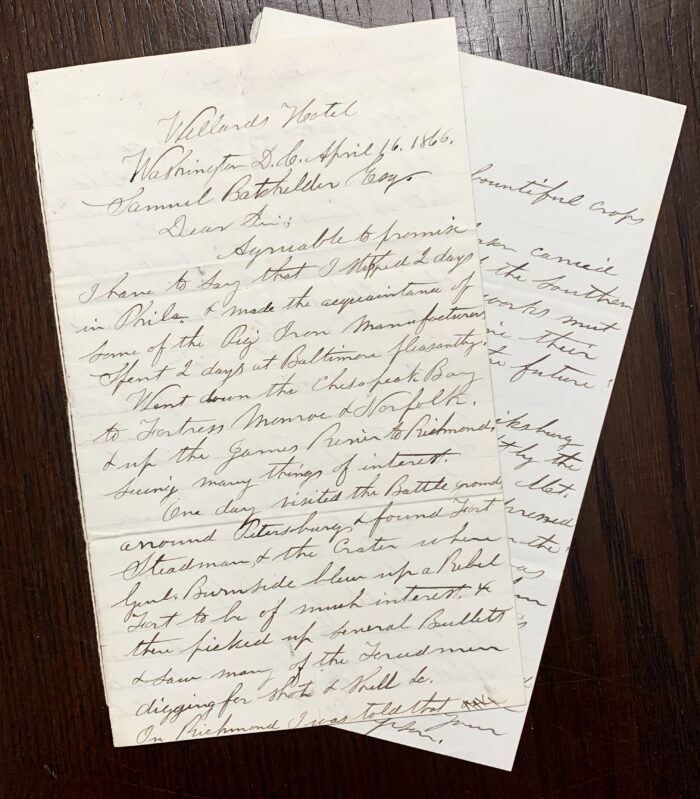 Willards Hotel
Washington D.C. April 16. 1866.
Samuel Batchelder Esq.
Dear Sir:
Agreeable to promise
I have to say that I stopped 2 days
in Phila & made the acquaintance of
some of the Pig Iron Manufacturers
Spent 2 days at Baltimore pleasantly.
Went down the Chesapeak Bay
to Fortress Monroe & Norfolk.
& up the James River to Richmond,
seeing many things of interest.
One day visited the Battle ground
arround Petersburg, & found Fort
Steadman, & the Crater where
Genl. Burnside blew up a Rebel
Fort to be of much interest. &
there picked up several Bullets
& saw many of the Freedmen
digging for Shot & Shell &c.
In Richmond I was told that
bountiful crops
carried
the Southern
works must
their
the future
icksburg
by the
Mst.
the
as